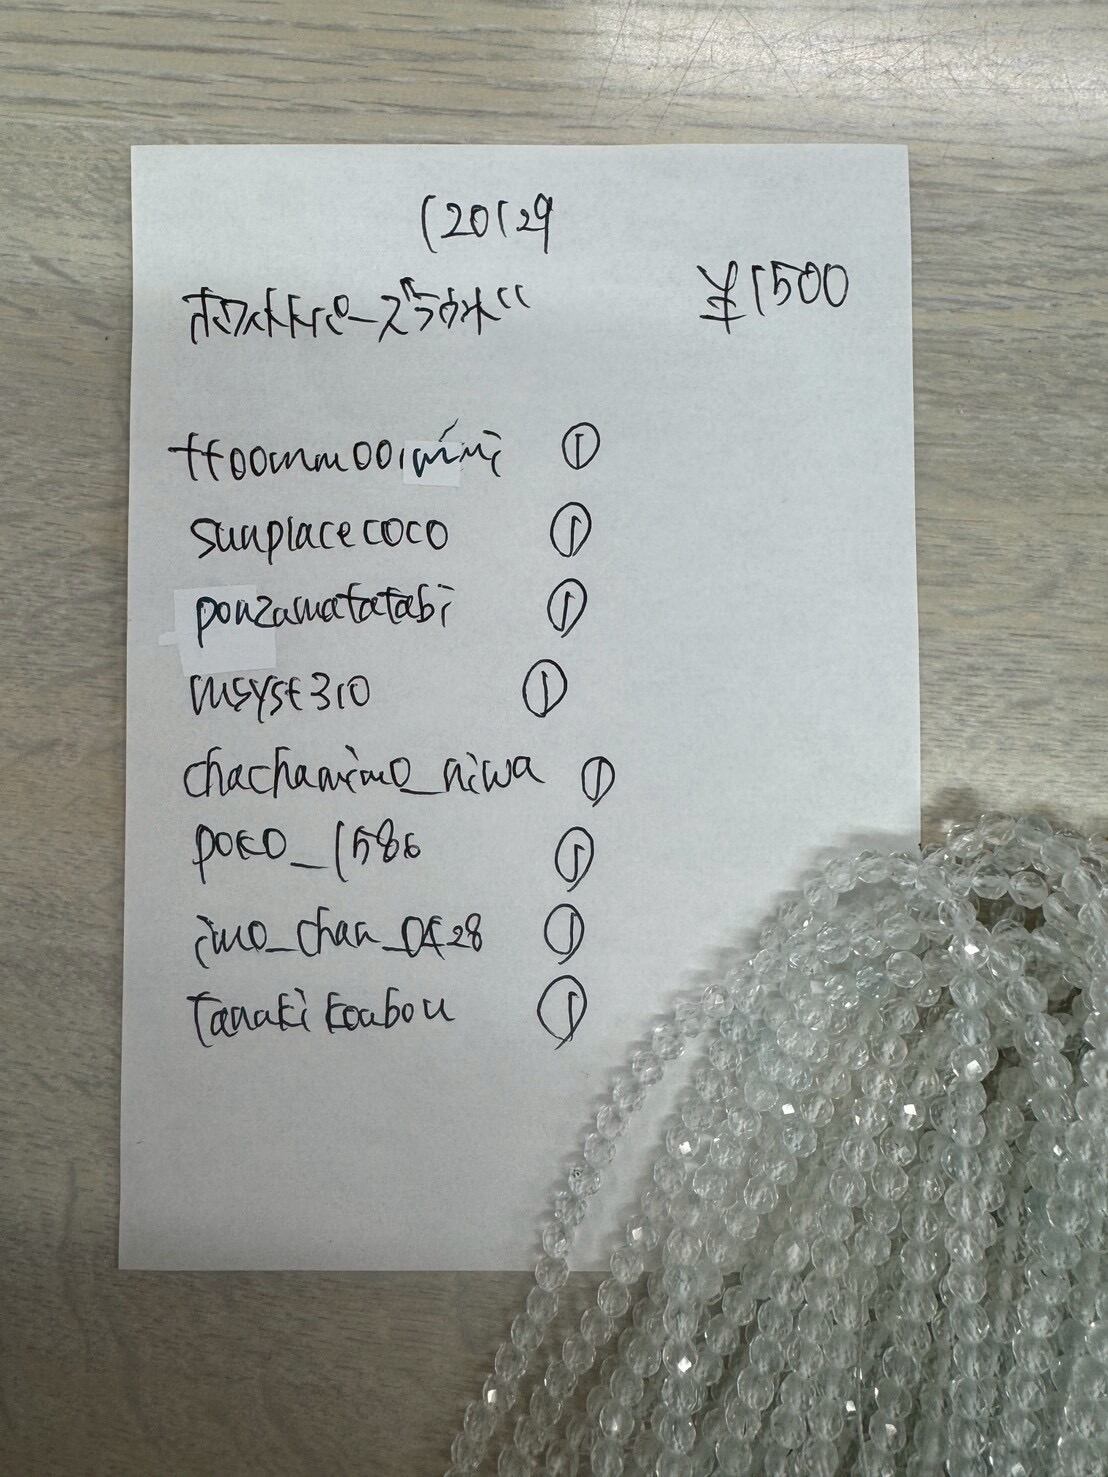 120129
ホワイトトパーズラウンド
¥1500
ttoomm001mimi ①
sunplacecoco ①
ponzamatatabi ①
msyst310 ①
chachamimo_niwa ①
poko_1586 ①
imo_chan_0428 ①
tanakikoubou ①